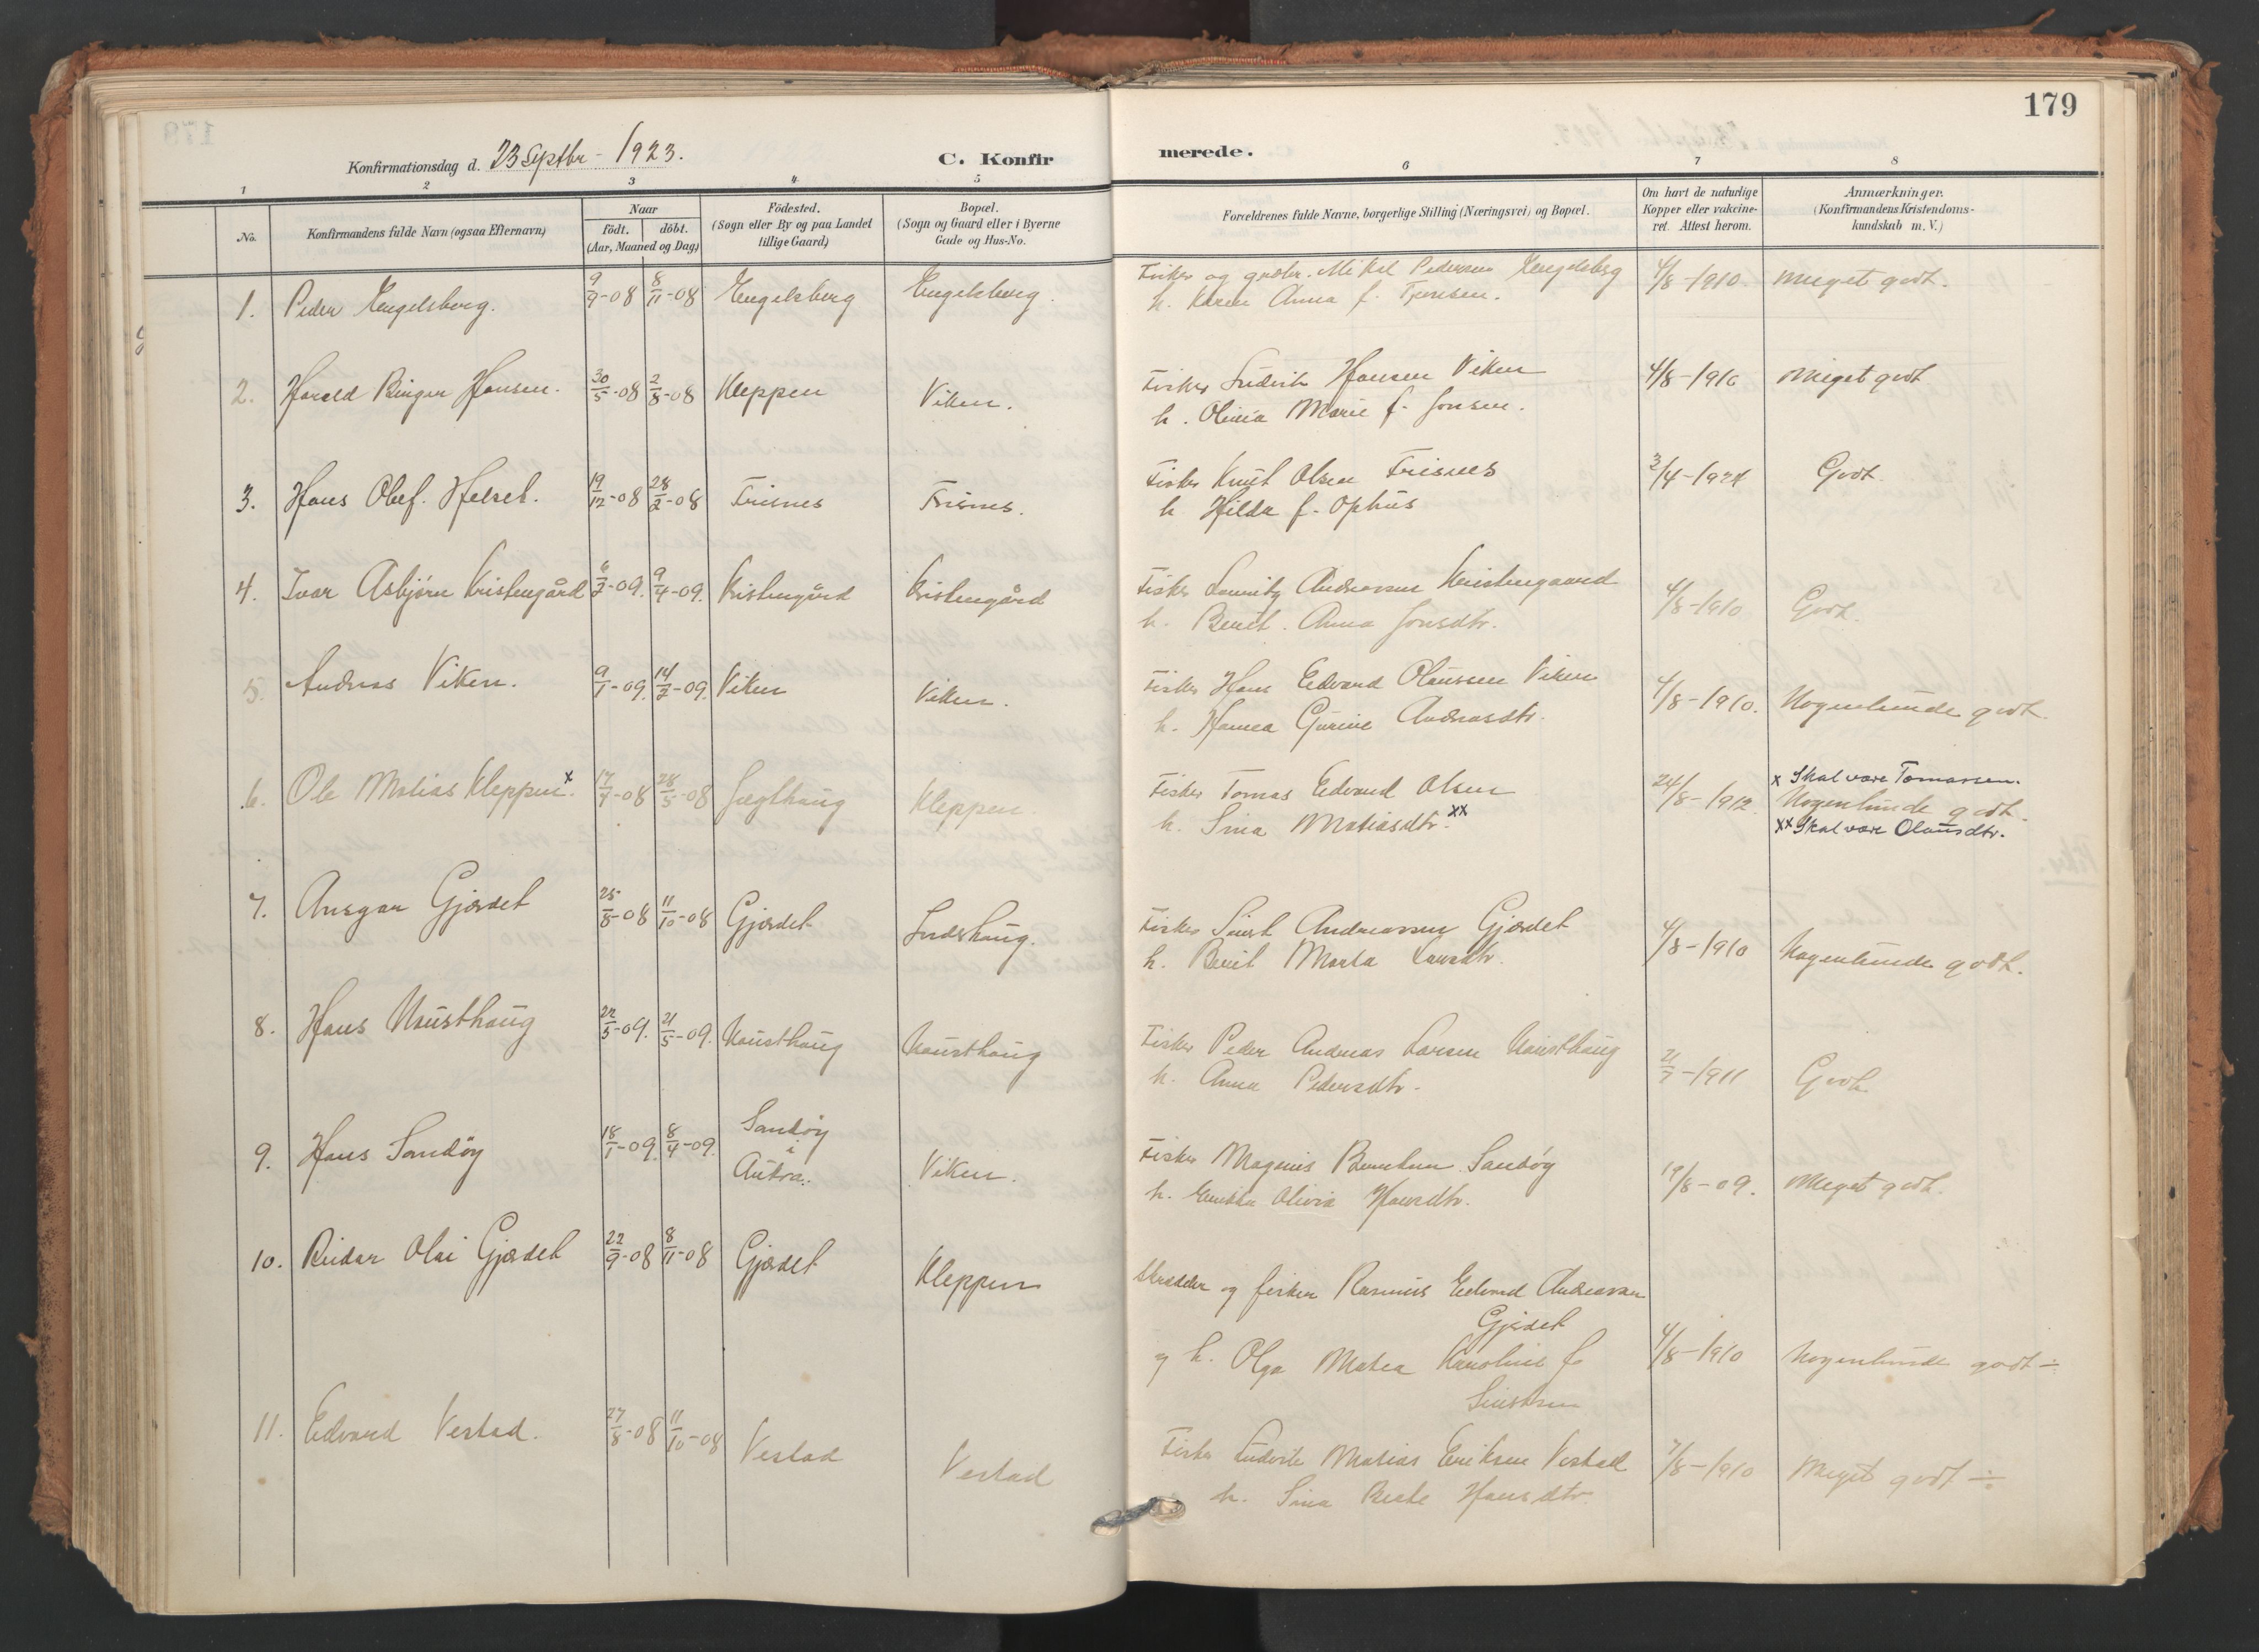 179
Konfirmationsdag d. 23 Septbr - 1923.
C. Konfir
merede.
1 2 3 4 5 6 7 8
No.
Konfirmandens fulde Navn (ogsaa Efternavn)
Naar
födt. döbt.
(Aar, Maaned og Dag)
Födested.
(Sogn eller By og paa Landet
tillige Gaard)
Bopæl.
(Sogn og Gaard eller i Byerne
Gade og Hus-No.
Forældrenes fulde Navne, borgerlige Stilling (Næringsvei) og Bopæl.
Om havt de naturlige
Kopper eller vakcine-
ret. Attest herom.
Anmærkninger.
(Konfirmandens Kristendoms-
kundskab m. V.)
1. Peder Engelsberg. 9/9-08 8/11-08 Engelsberg Engelsberg.
Fisker og grdbr. Mikal Pedersen Engelsberg 4/8-1910 Meget godt.
h. Karen Anna f.
2. Harald Birger Hansen. 30/5-08 2/8-08 Kleppen Viken.
Fisker Ludvik Hansen Viken 4/8-1910 Meget godt
h. Olivia Marie f. Jonsen.
3. Hans Olef. Helset. 19/12-08 28/2-08 Frisnes Frisnes.
Fisker Knut Olsen Frisnes 3/4-1924 Godt.
h Hilda f. Ophus
4. Ivar Asbjørn Kristengård 6/2-09. 9/4-09. Kristengård Kristengård
Fisker Lauritz Andreassen Kristengaard 4/8-1910 Godt.
h. Berit Anna Jonsdtr.
5. Andreas Viken. 9/1-09. 14/2-09. Viken Viken.
Fisker Hans Edvard Olaussen Viken 4/8-1910. Nogenlunde godt.
h. Hanna Gurine Andreasdtr.
6. Ole Matias Kleppen.x 17/4-08 28/5-08 Jægthaug Kleppen.
Fisker Tomas Edvard Olsen 24/8-1912 x Skal være Tomassen.
Nogenlunde godt.
h. Sina Matiasdtr.xx
xx Skal være Olausdtr.
7. Ansgar Gjerdet 25/8-08 11/10-08 Gjerdet Indrehaug.
Fisker Sivert Andreassen Gjerdet 4/8-1910 Nogenlunde godt.
h. Berit Marta Larsdtr.
8. Hans Nausthaug 22/3-09. 21/5-09. Nausthaug Nausthaug
Fisker Peder Andreas Larsen Nausthaug 21/7-1911 Godt
h. Anna Pedersdtr.
9. Hans Sandøy 18/1-09. 8/4-09. Sandøy
i
Aukra. Viken.
Fisker Magnus Berntsen Sandøy 19/8-09. Meget godt.
h. Olivia Hansdtr.
10. Reidar Olai Gjerdet 22/9-08 8/11-08 Gjerdet Kleppen
Skrædder og fisker Rasmus Edvard Andreassen
Gjerdet
og h. Olga Matea Karoline f. 4/8-1910 Nogenlunde godt ÷
Sivertsen
11. Edvard Vestad. 27/8-08 11/10-08 Vestad Vestad
Fisker Ludvik Matias Eriksen Vestad 7/8-1910 Meget godt ÷
h. Sina Berte Hansdtr.